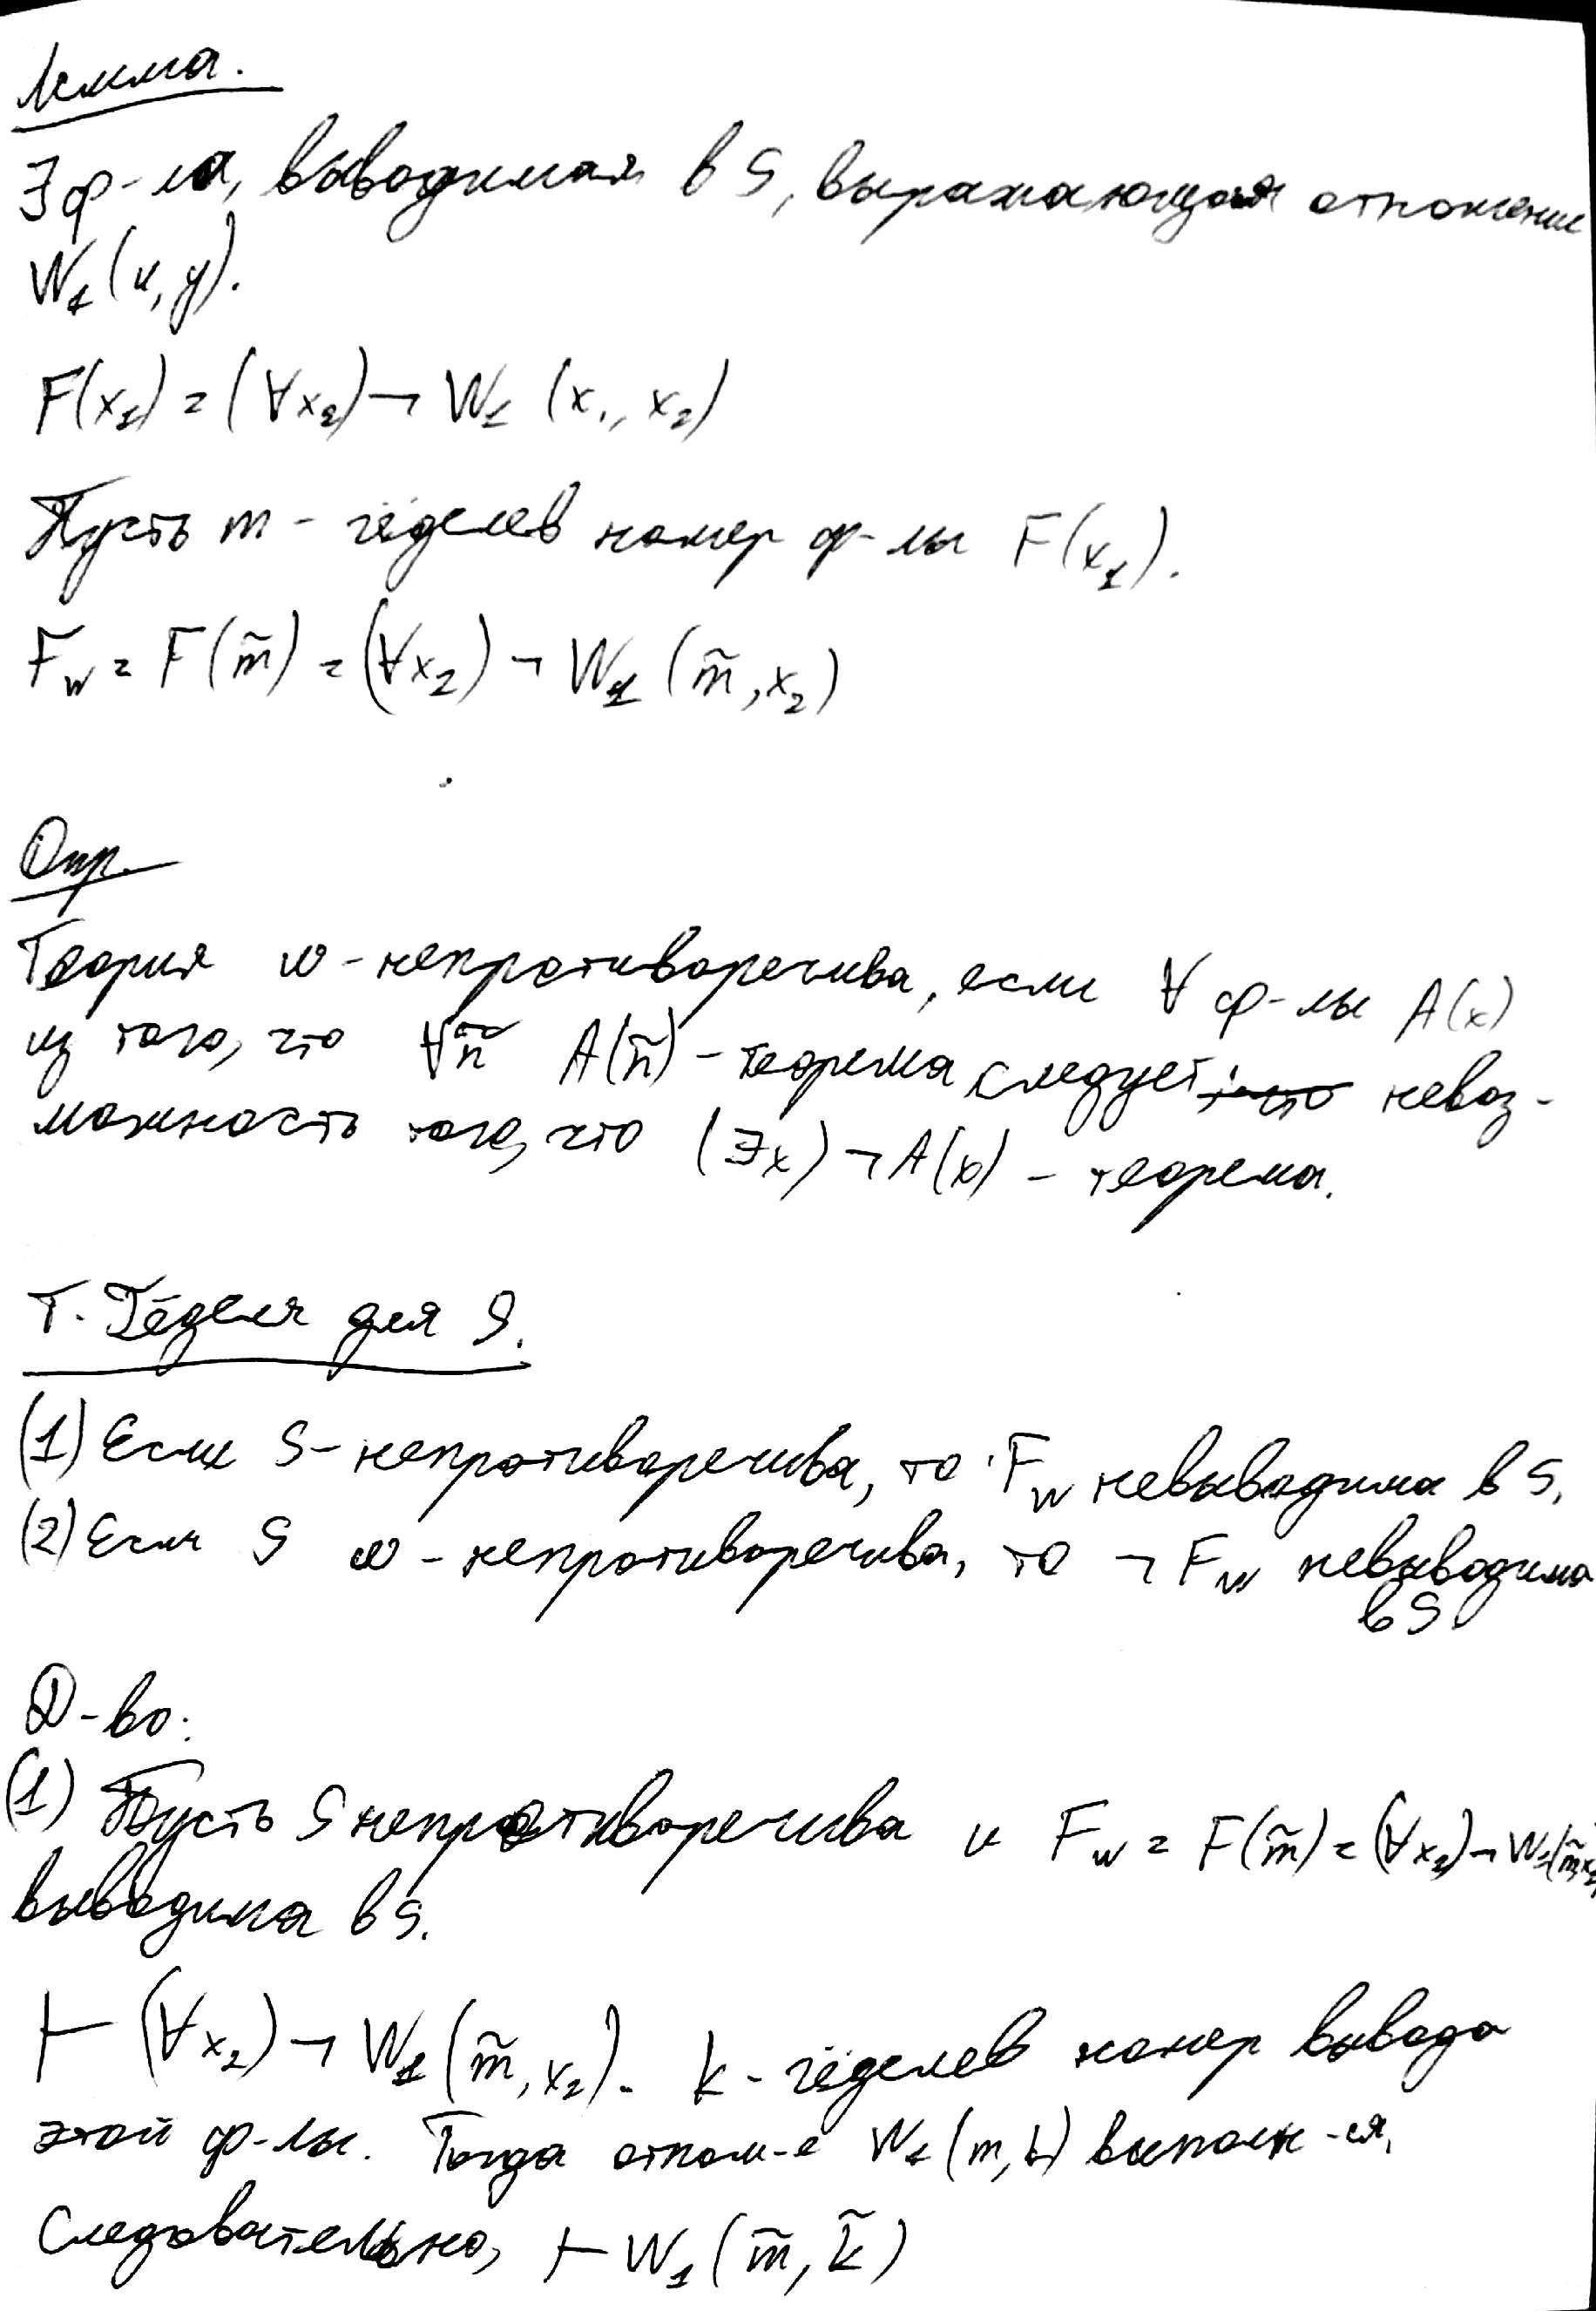 Лемма.
∃ ф-ла, выводимая в S, выражающая отношение
W₁(u, y).
F(x₁) = (∀x₂) ¬ W₁ (x₁, x₂)
Пусть m - гёделев номер ф-лы F(x₁).
F_W = F(m̃) = (∀x₂) ¬ W₁ (m̃, x₂)
Опр.
Теория ω-непротиворечива, если ∀ ф-лы A(x)
из того, что ∀ñ A(ñ) - теорема следует невоз-
можность того, что (∃x) ¬ A(x) - теорема.
Т. Гёделя для S.
(1) Если S - непротиворечива, то F_W невыводима в S,
(2) Если S ω - непротиворечива, то ¬ F_W невыводима
в S.
Д-во:
(1) Пусть S непротиворечива и F_W = F(m̃) = (∀x₂) ¬ W₁(m̃, x₂)
выводима в S.
⊢ (∀x₂) ¬ W₁ (m̃, x₂). k - гёделев номер вывода
этой ф-лы. Тогда отнош-е W₁ (m, k) выполн-ся,
Следовательно, ⊢ W₁ (m̃, k̃)